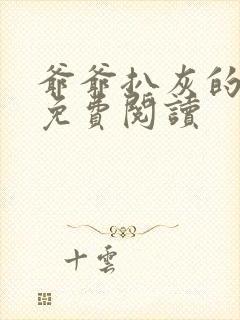 爺爺扒灰的
免費閱讀
十雲